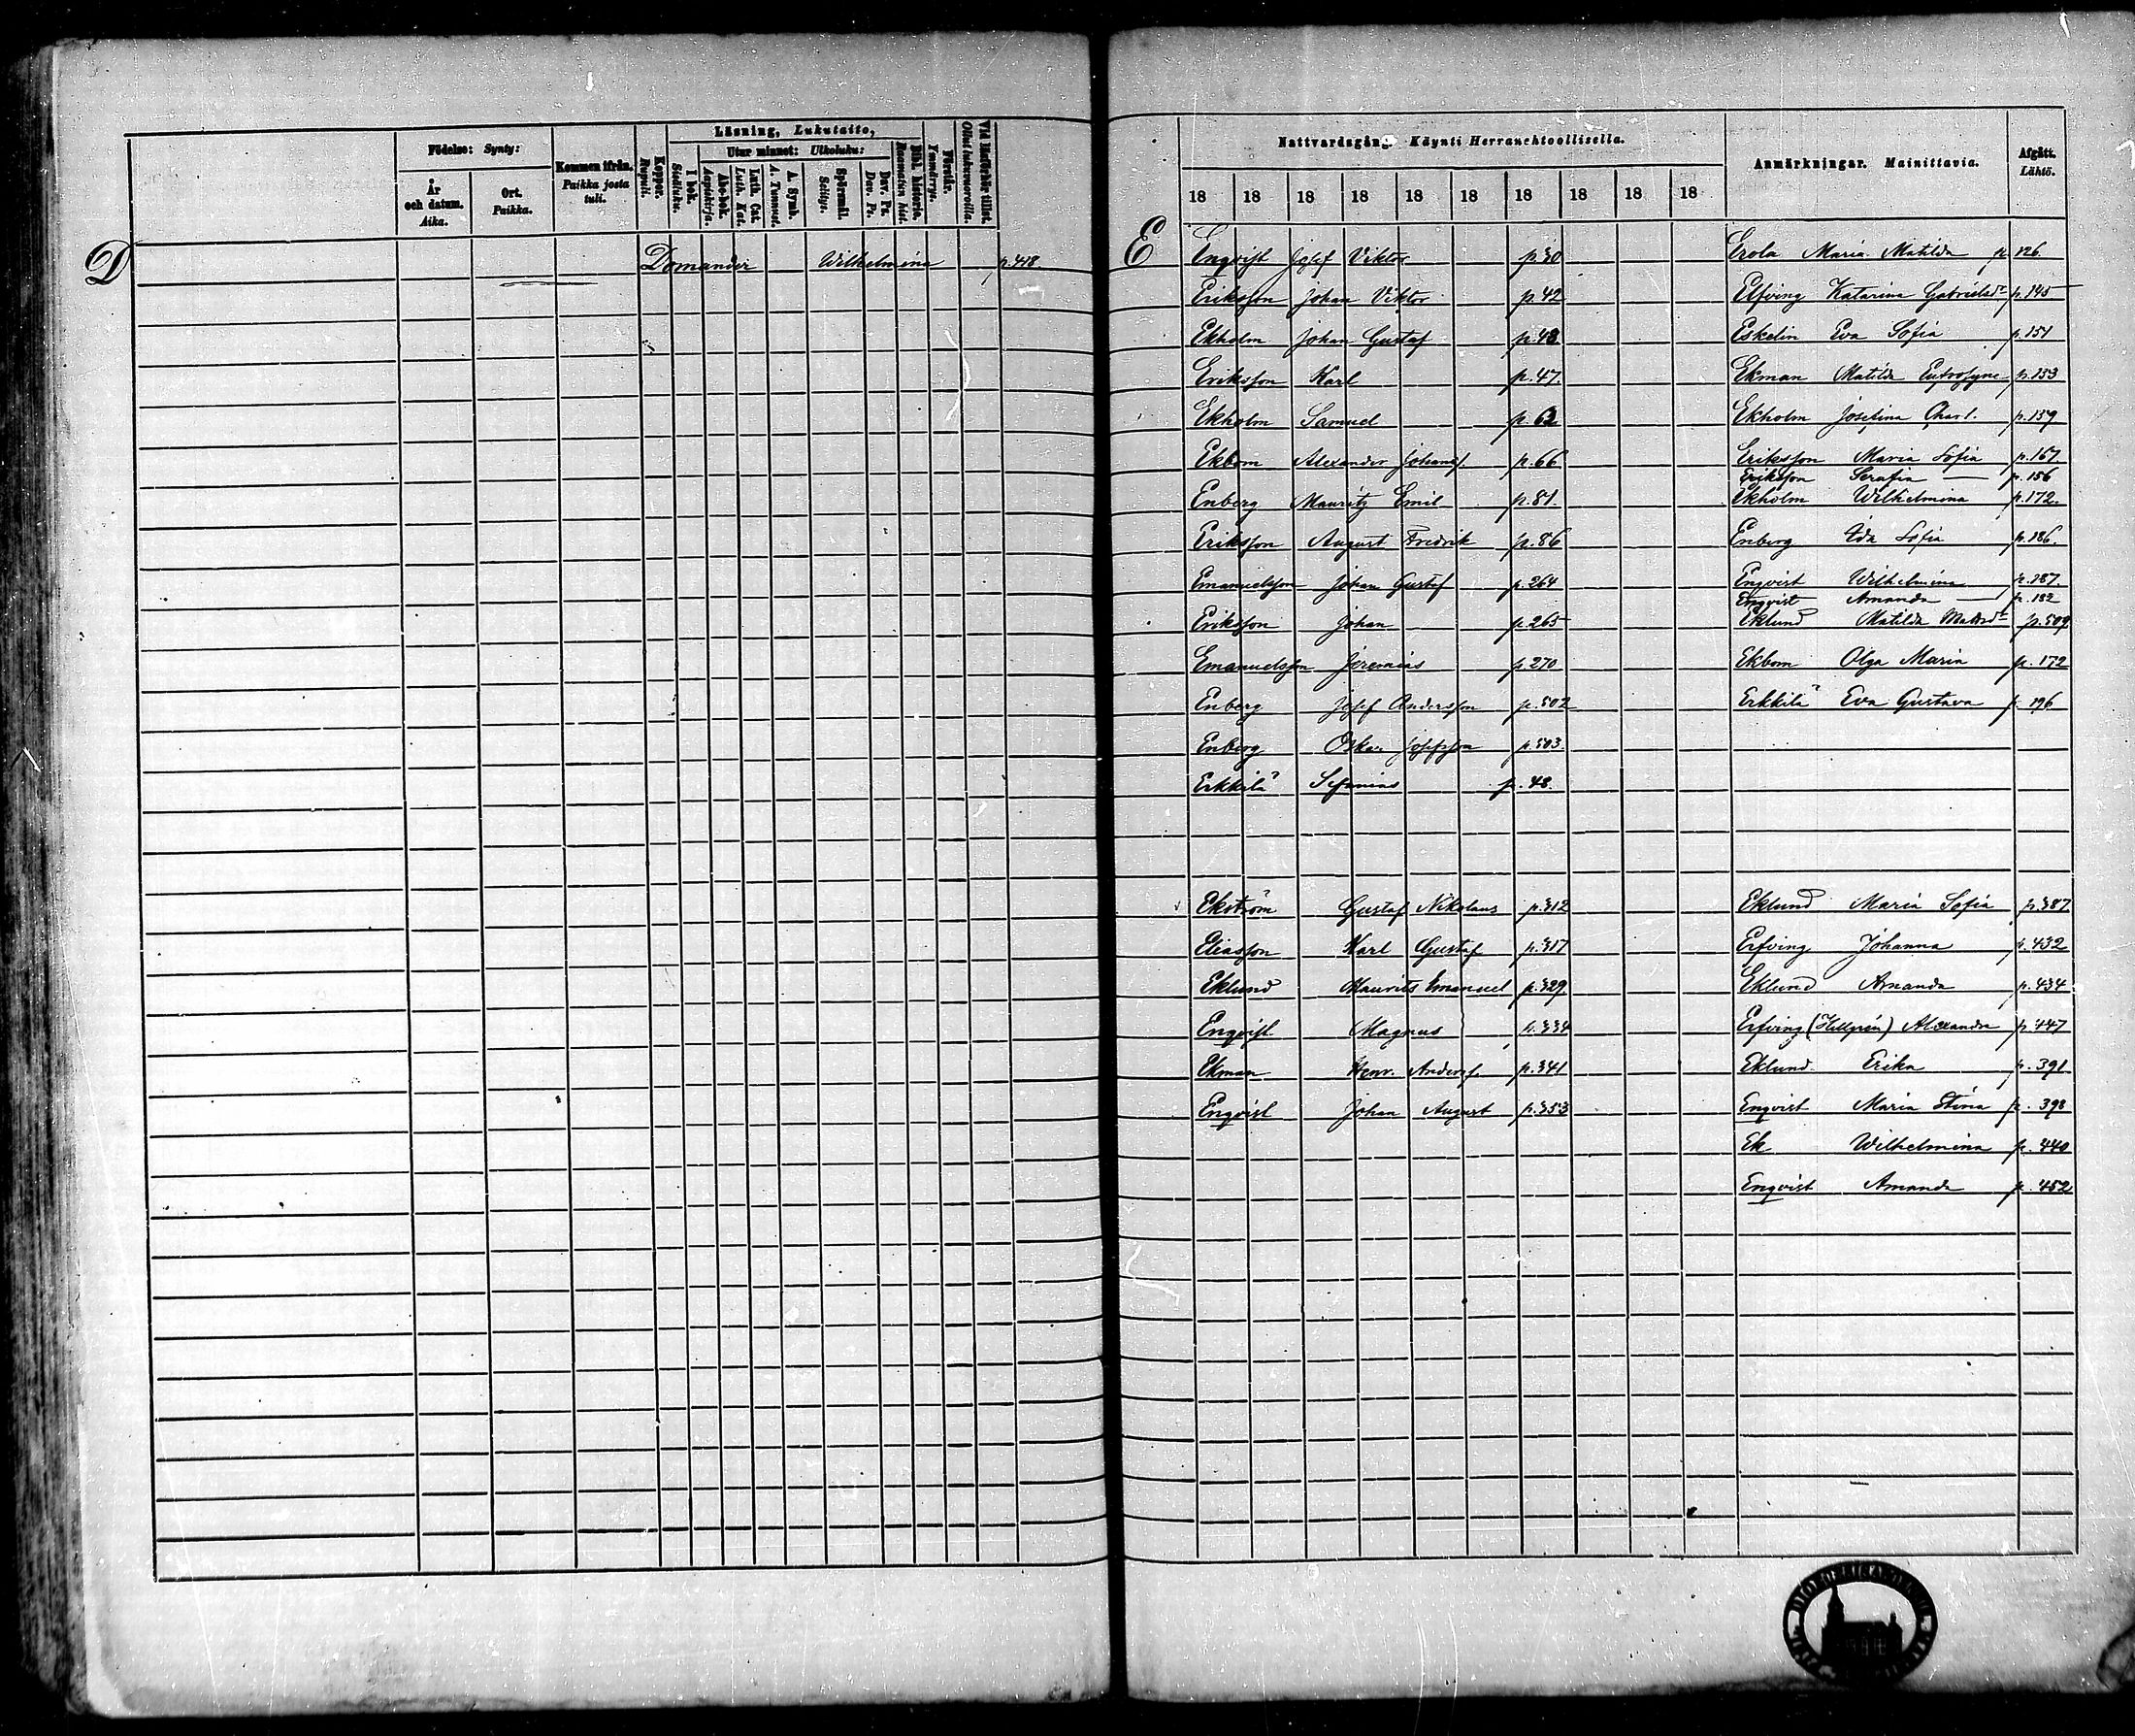 Födelse: Synty:
År och datum. Aika.
Ort. Paikka.
Kommen ifrån. Paikka josta tuli.
Koppor. Rupuli.
Läsning, Lukutaito,
I bok. Sisäluku.
Utur minnet: Ulkoluku:
Abc-bok. Aapiskirja.
Luth. Cat. Luth. Kat.
A. Symb. A. Tunnust.
Spörsmål. Selitys.
Dav. Ps. Dav. Ps.
Bibl. historia. Raamatun hist.
Förstår. Ymmärrys.
Vid läsförhör tillst. Ollut lukuvuoroilla.
D
Domander Wilhelmina p. 418
Nattvardsgång. Käynti Herranehtoollisella.
Anmärkningar. Mainittavia.
Afgått. Lähtö.
18 18 18 18 18 18 18 18 18 18
E
Enqvist Josef Viktor p. 30
Eriksson Johan Viktor p. 42
Ekholm Johan Gustaf p. 43
Eriksson Karl p. 47.
Ekholm Samuel p. 62
Ekbom Alexander Johansf. p. 66
Enberg Mauritz Emil p. 81.
Eriksson August Fredrik p. 86
Emanuelsson Johan Gustaf p. 264
Eriksson Johan p. 265
Emanuelsson Jeremias p. 270
Enberg Josef Andersson p. 502
Enberg Oskar Josefsson p. 503.
Erkkilä Sefanias p. 48.
Ekström Gustaf Nikolaus p. 312
Eliasson Karl Gustaf p. 317
Eklund Maurits Emanuel p. 329
Enqvist Magnus p. 334
Ekman Henr. Andersf. p. 341
Enqvist Johan August p. 353
Erola Maria Matilda p. 126.
Elfving Katarina Gabrielsdr p. 145
Eskelin Eva Sofia p. 151
Ekman Matilda Eufrosyne p. 153
Ekholm Josefina Charl. p. 159
Eriksson Maria Sofia p. 167
Eriksson Serafia — p. 156
Ekholm Wilhelmina p. 172.
Enberg Ida Sofia p. 186.
Enqvist Wilhelmina p. 187.
Enqvist Amanda — p. 182
Eklund Matilda Mattsdr p. 509
Ekbom Olga Maria p. 172
Erkkilä Eva Gustava p. 196
Eklund Maria Sofia p. 387
Erfving Johanna p. 432
Eklund Amanda p. 434
Erfving (Hellgrén) Alexandra p. 447
Eklund Erika p. 391
Enqvist Maria Stina p. 398
Ek Wilhelmina p. 440
Enqvist Amanda p. 452